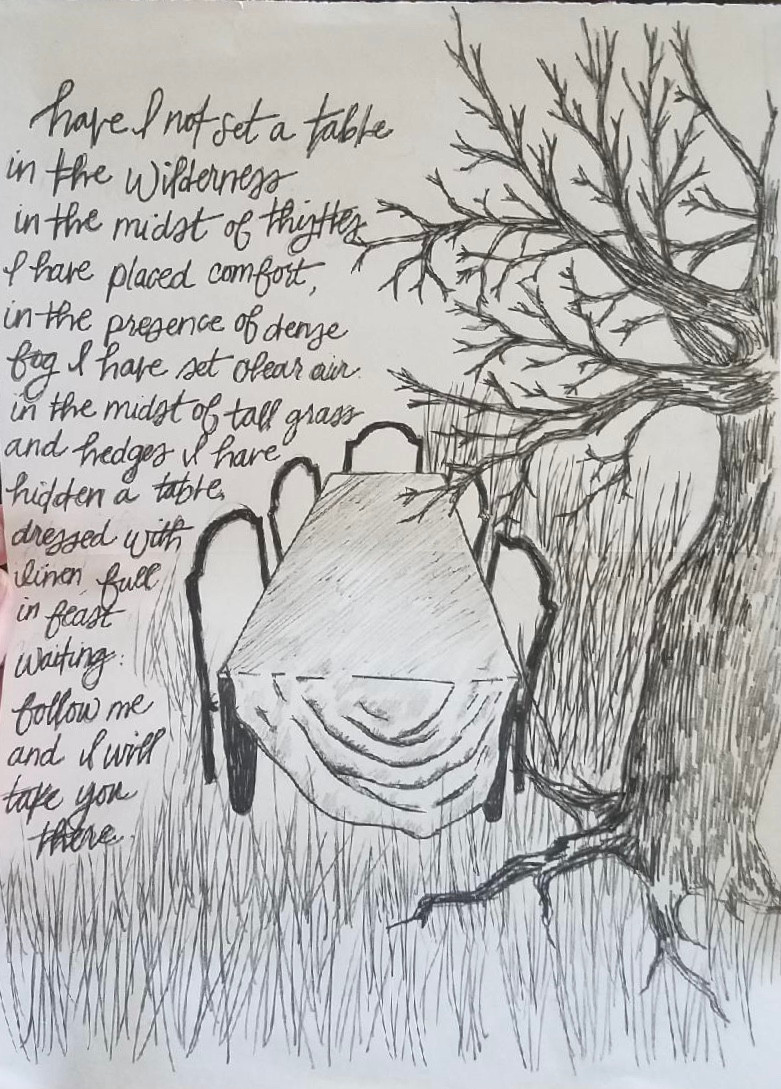 have I not set a table
in the wilderness
in the midst of thistles
I have placed comfort,
in the presence of dense
fog I have set clear air.
in the midst of tall grass
and hedges I have
hidden a table,
dressed with
linen full
in feast
waiting.
follow me
and I will
take you
there.